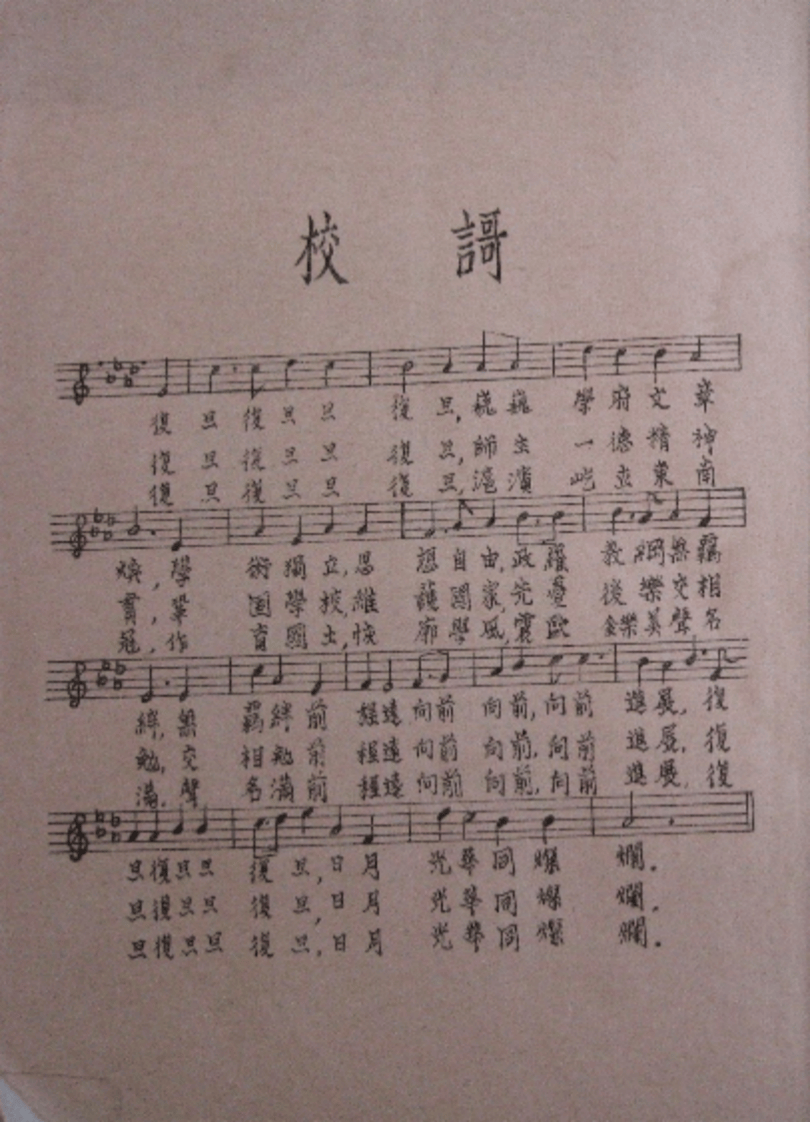 校 謌
復旦復旦旦復旦,巍巍學府文章
復旦復旦旦復旦,師生一德精神
復旦復旦旦復旦,滬濱屹立東南
煥,學術獨立,思想自由,政羅教網無羈
貫,鞏固學校,維護國家,先憂後樂交相
冠,作育國士,恢廓學風,震歐鑠美聲名
絆,無羈絆前程遠向前向前,向前進展,復
勉,交相勉前程遠向前向前,向前進展,復
滿,聲名滿前程遠向前向前,向前進展,復
旦復旦旦復旦,日月光華同燦爛.
旦復旦旦復旦,日月光華同燦爛.
旦復旦旦復旦,日月光華同燦爛.